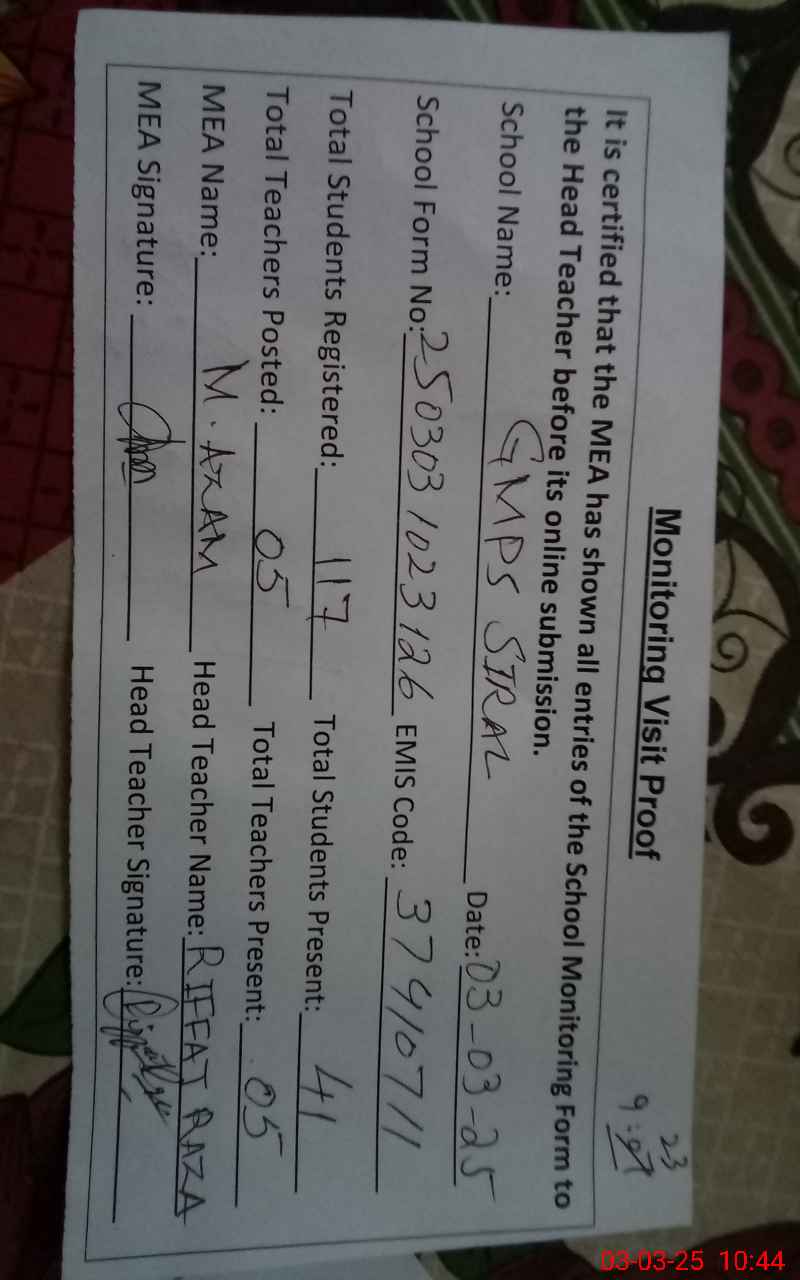 Monitoring Visit Proof
23
It is certified that the MEA has shown all entries of the School Monitoring Form to
the Head Teacher before its online submission.
School Name: GMPS SIRAL Date: 03-03-25
School Form No: 250303 1023126 EMIS Code: 37410711
Total Students Registered: 117 Total Students Present: 41
Total Teachers Posted: 05 Total Teachers Present: 05
MEA Name: M. AZAM Head Teacher Name: RIFFAT RAZA
MEA Signature: Head Teacher Signature:
03-03-25 10:44